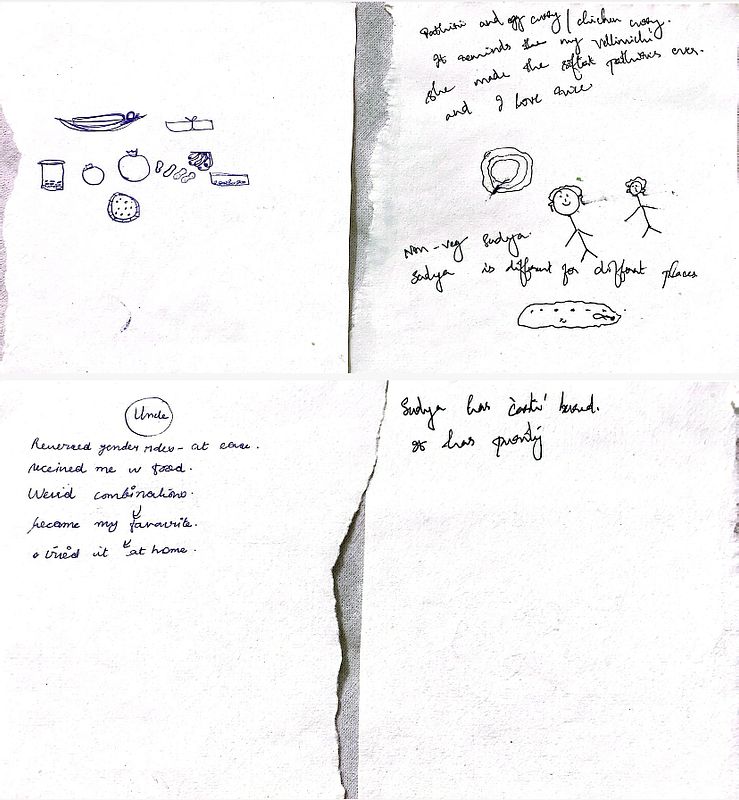 Pathiri and egg curry / chicken curry.
It reminds the my Vellimichi
She made the softest pathiris ever.
and I love rice
Non-veg Sadya.
Sadya is different for different places
Uncle
Reversed gender roles - at ease.
received me w food.
Weird combinations.
became my favourite.
tried it at home.
Sadya has 'caste' based.
It has purity